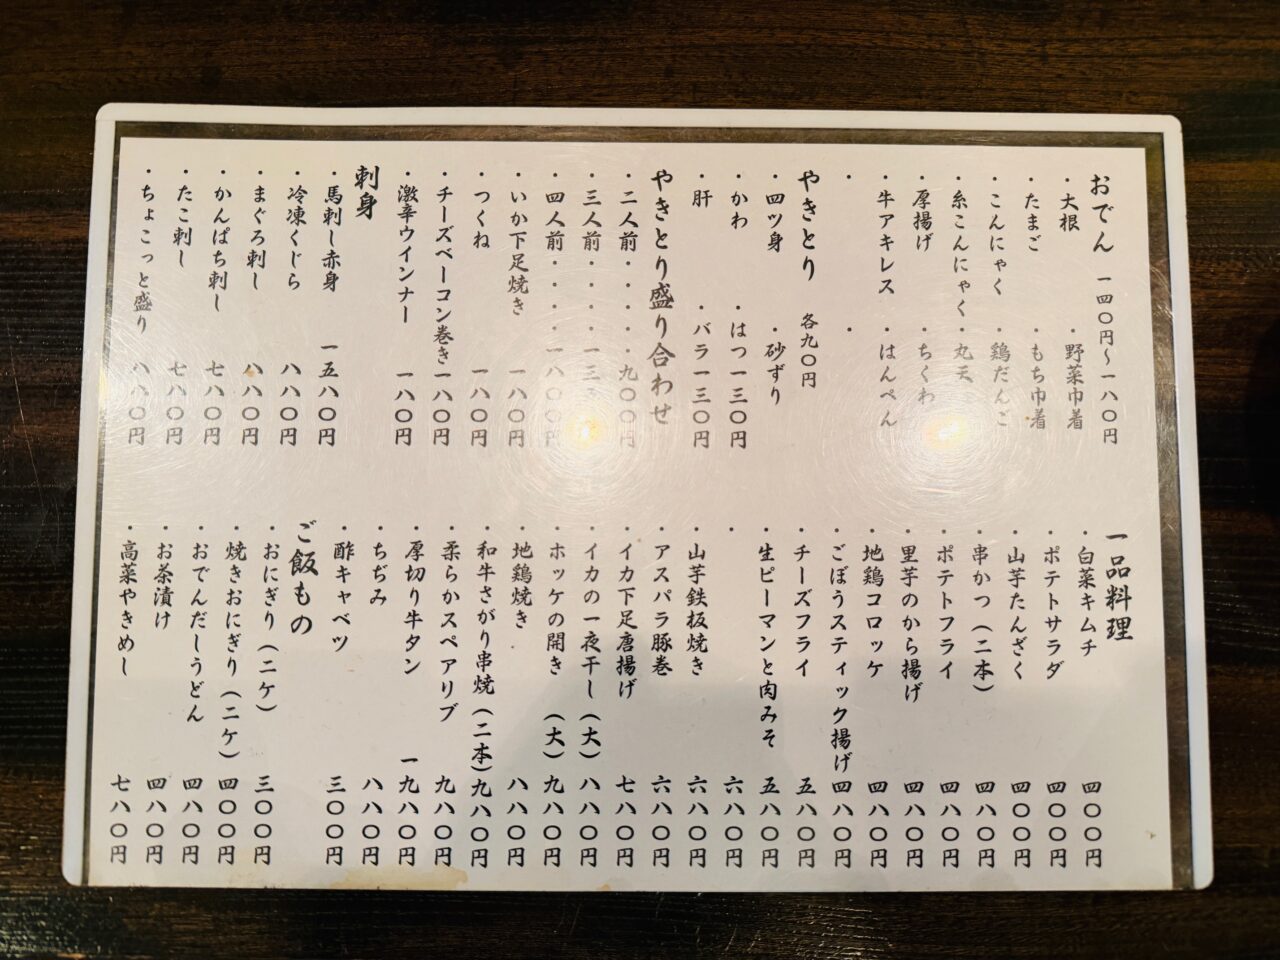 おでん 一四〇円〜一八〇円
・大根 ・野菜巾着
・たまご ・もち巾着
・こんにゃく ・鶏だんご
・糸こんにゃく ・丸天
・厚揚げ ・ちくわ
・牛アキレス ・はんぺん
・ ・
やきとり 各九〇円
・四ツ身 ・砂ずり
・かわ ・はつ一三〇円
・肝 ・バラ一三〇円
やきとり盛り合わせ
・二人前・・・・九〇〇円
・三人前・・・・一三
・四人前・・・・一八〇〇円
・いか下足焼き 一八〇円
・つくね 一八〇円
・チーズベーコン巻き一八〇円
・激辛ウインナー 一八〇円
刺身
・馬刺し赤身 一五八〇円
・冷凍くじら 八八〇円
・まぐろ刺し 八八〇円
・かんぱち刺し 七八〇円
・たこ刺し 七八〇円
・ちょこっと盛り 八八〇円
一品料理
・白菜キムチ 四〇〇円
・ポテトサラダ 四〇〇円
・山芋たんざく 四〇〇円
・串かつ(二本) 四八〇円
・ポテトフライ 四八〇円
・里芋のから揚げ 四八〇円
・地鶏コロッケ 四八〇円
・ごぼうスティック揚げ 四八〇円
・チーズフライ 五八〇円
・生ピーマンと肉みそ 五八〇円
・ 六八〇円
・山芋鉄板焼き 六八〇円
・アスパラ豚巻 六八〇円
・イカ下足唐揚げ 七八〇円
・イカの一夜干し(大) 八八〇円
・ホッケの開き (大) 九八〇円
・地鶏焼き 八八〇円
・和牛さがり串焼(二本)九八〇円
・柔らかスペアリブ 九八〇円
・厚切り牛タン 一九八〇円
・ちぢみ 八八〇円
・酢キャベツ 三〇〇円
ご飯もの
・おにぎり(二ケ) 三〇〇円
・焼きおにぎり(二ケ) 四〇〇円
・おでんだしうどん 四八〇円
・お茶漬け 四八〇円
・高菜やきめし 七八〇円